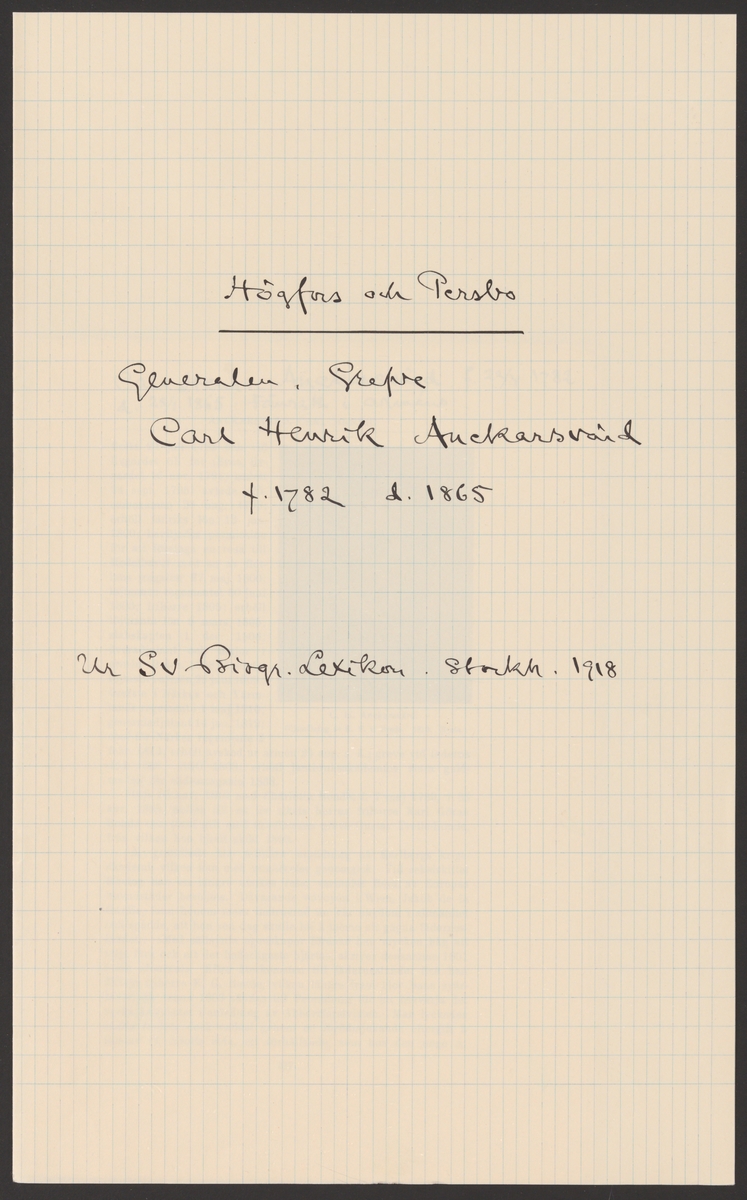 Högfors och Persbo
Generalen. Grefve
Carl Henrik Anckarsvärd
f. 1782 d. 1865
Ur Sv Biogr. Lexikon. Stockh. 1918